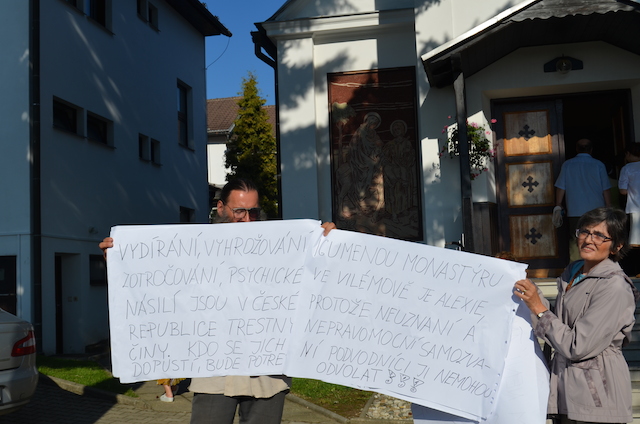 VYDÍRÁNÍ, VYHROŽOVÁNÍ
ZOTROČOVÁNÍ, PSYCHICKÉ
NÁSILÍ JSOU V ČESKÉ
REPUBLICE TRESTNÝ
ČINY. KDO SE JICH
DOPUSTÍ, BUDE POTRE
GUMENOU MONASTÝRU
VE VILÉMOVĚ JE ALEXIE,
PROTOŽE NEUZNANÍ A
NEPRAVOMOCNÍ SAMOZVA-
NÍ PODVODNÍCI JI NEMOHOU
ODVOLAT